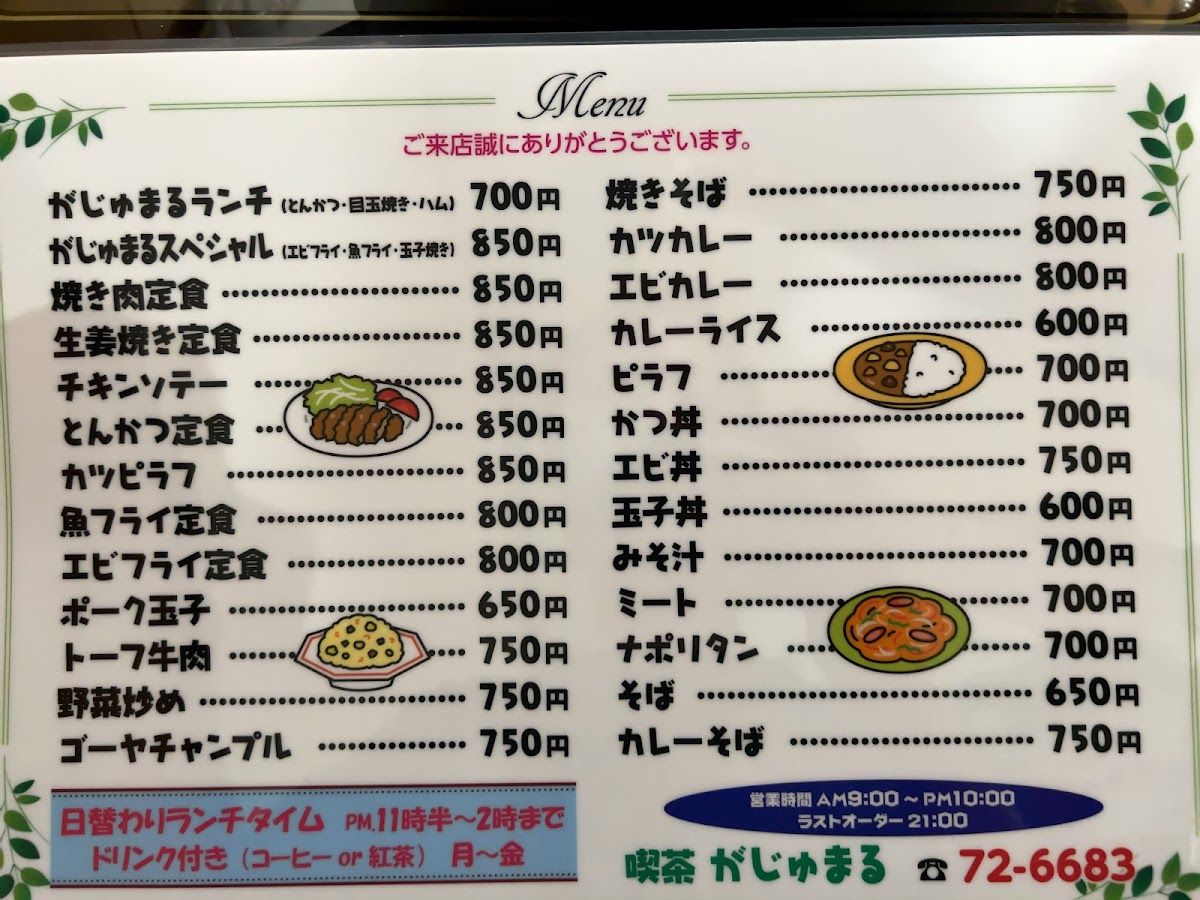 Menu
ご来店誠にありがとうございます。
がじゅまるランチ (とんかつ・目玉焼き・ハム) 700円
がじゅまるスペシャル (エビフライ・魚フライ・玉子焼き) 850円
焼き肉定食 850円
生姜焼き定食 850円
チキンソテー 850円
とんかつ定食 850円
カツピラフ 850円
魚フライ定食 800円
エビフライ定食 800円
ポーク玉子 650円
トーフ牛肉 750円
野菜炒め 750円
ゴーヤチャンプル 750円
日替わりランチタイム PM.11時半～2時まで
ドリンク付き（コーヒー or 紅茶） 月～金
焼きそば 750円
カツカレー 800円
エビカレー 800円
カレーライス 600円
ピラフ 700円
かつ丼 700円
エビ丼 750円
玉子丼 600円
みそ汁 700円
ミート 700円
ナポリタン 700円
そば 650円
カレーそば 750円
営業時間 AM9:00 ～ PM10:00
ラストオーダー 21:00
喫茶 がじゅまる ☎ 72-6683